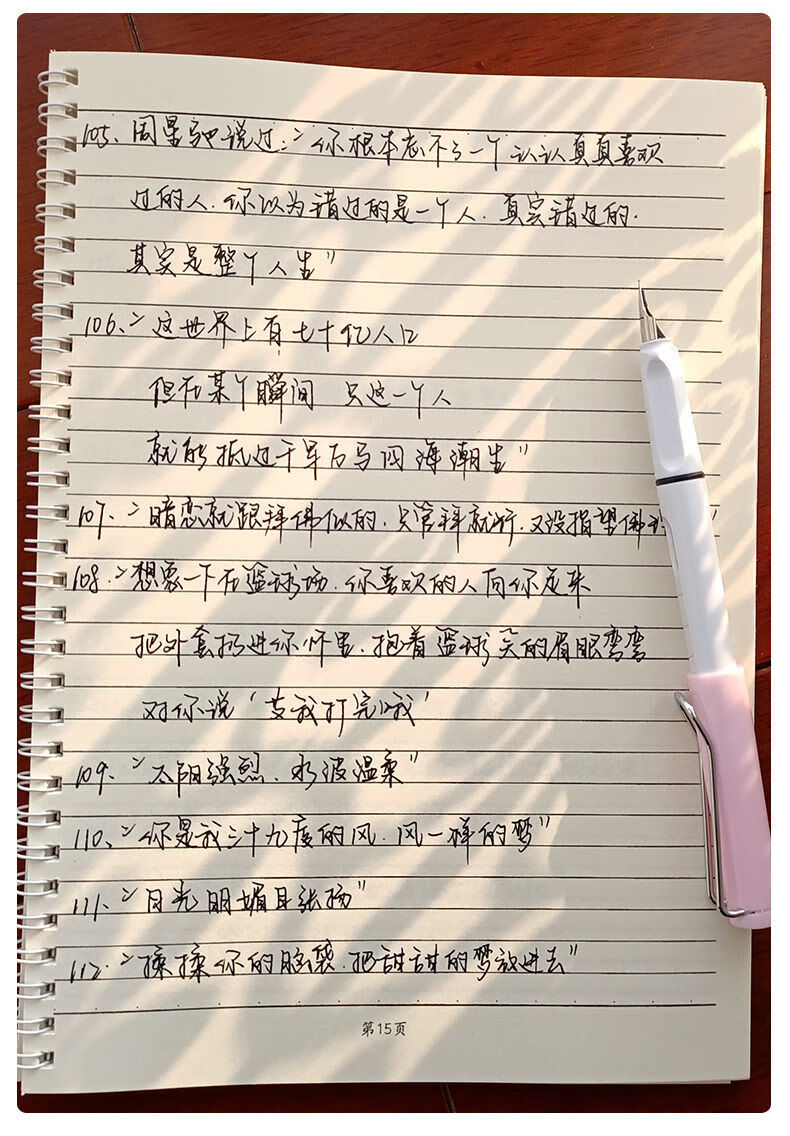 105、周星驰说过："你根本忘不了一个认认真真喜欢
过的人.你以为错过的是一个人.真实错过的.
其实是整个人生"
106、"这世界上有七十亿人口
但在某个瞬间 只这一个人
就能抵过千军万马四海潮生"
107、"暗恋就跟拜佛似的.只管拜就行.又没指望佛
108."想象一下在篮球场.你喜欢的人向你走来
把外套扔进你怀里.抱着篮球笑的眉眼弯弯
对你说'等我打完哦'
109、"太阳强烈.水波温柔"
110、"你是我三十九度的风.风一样的梦"
111、"月光明媚且张扬"
112."揉揉你的脑袋.把甜甜的梦放进去"
第15页